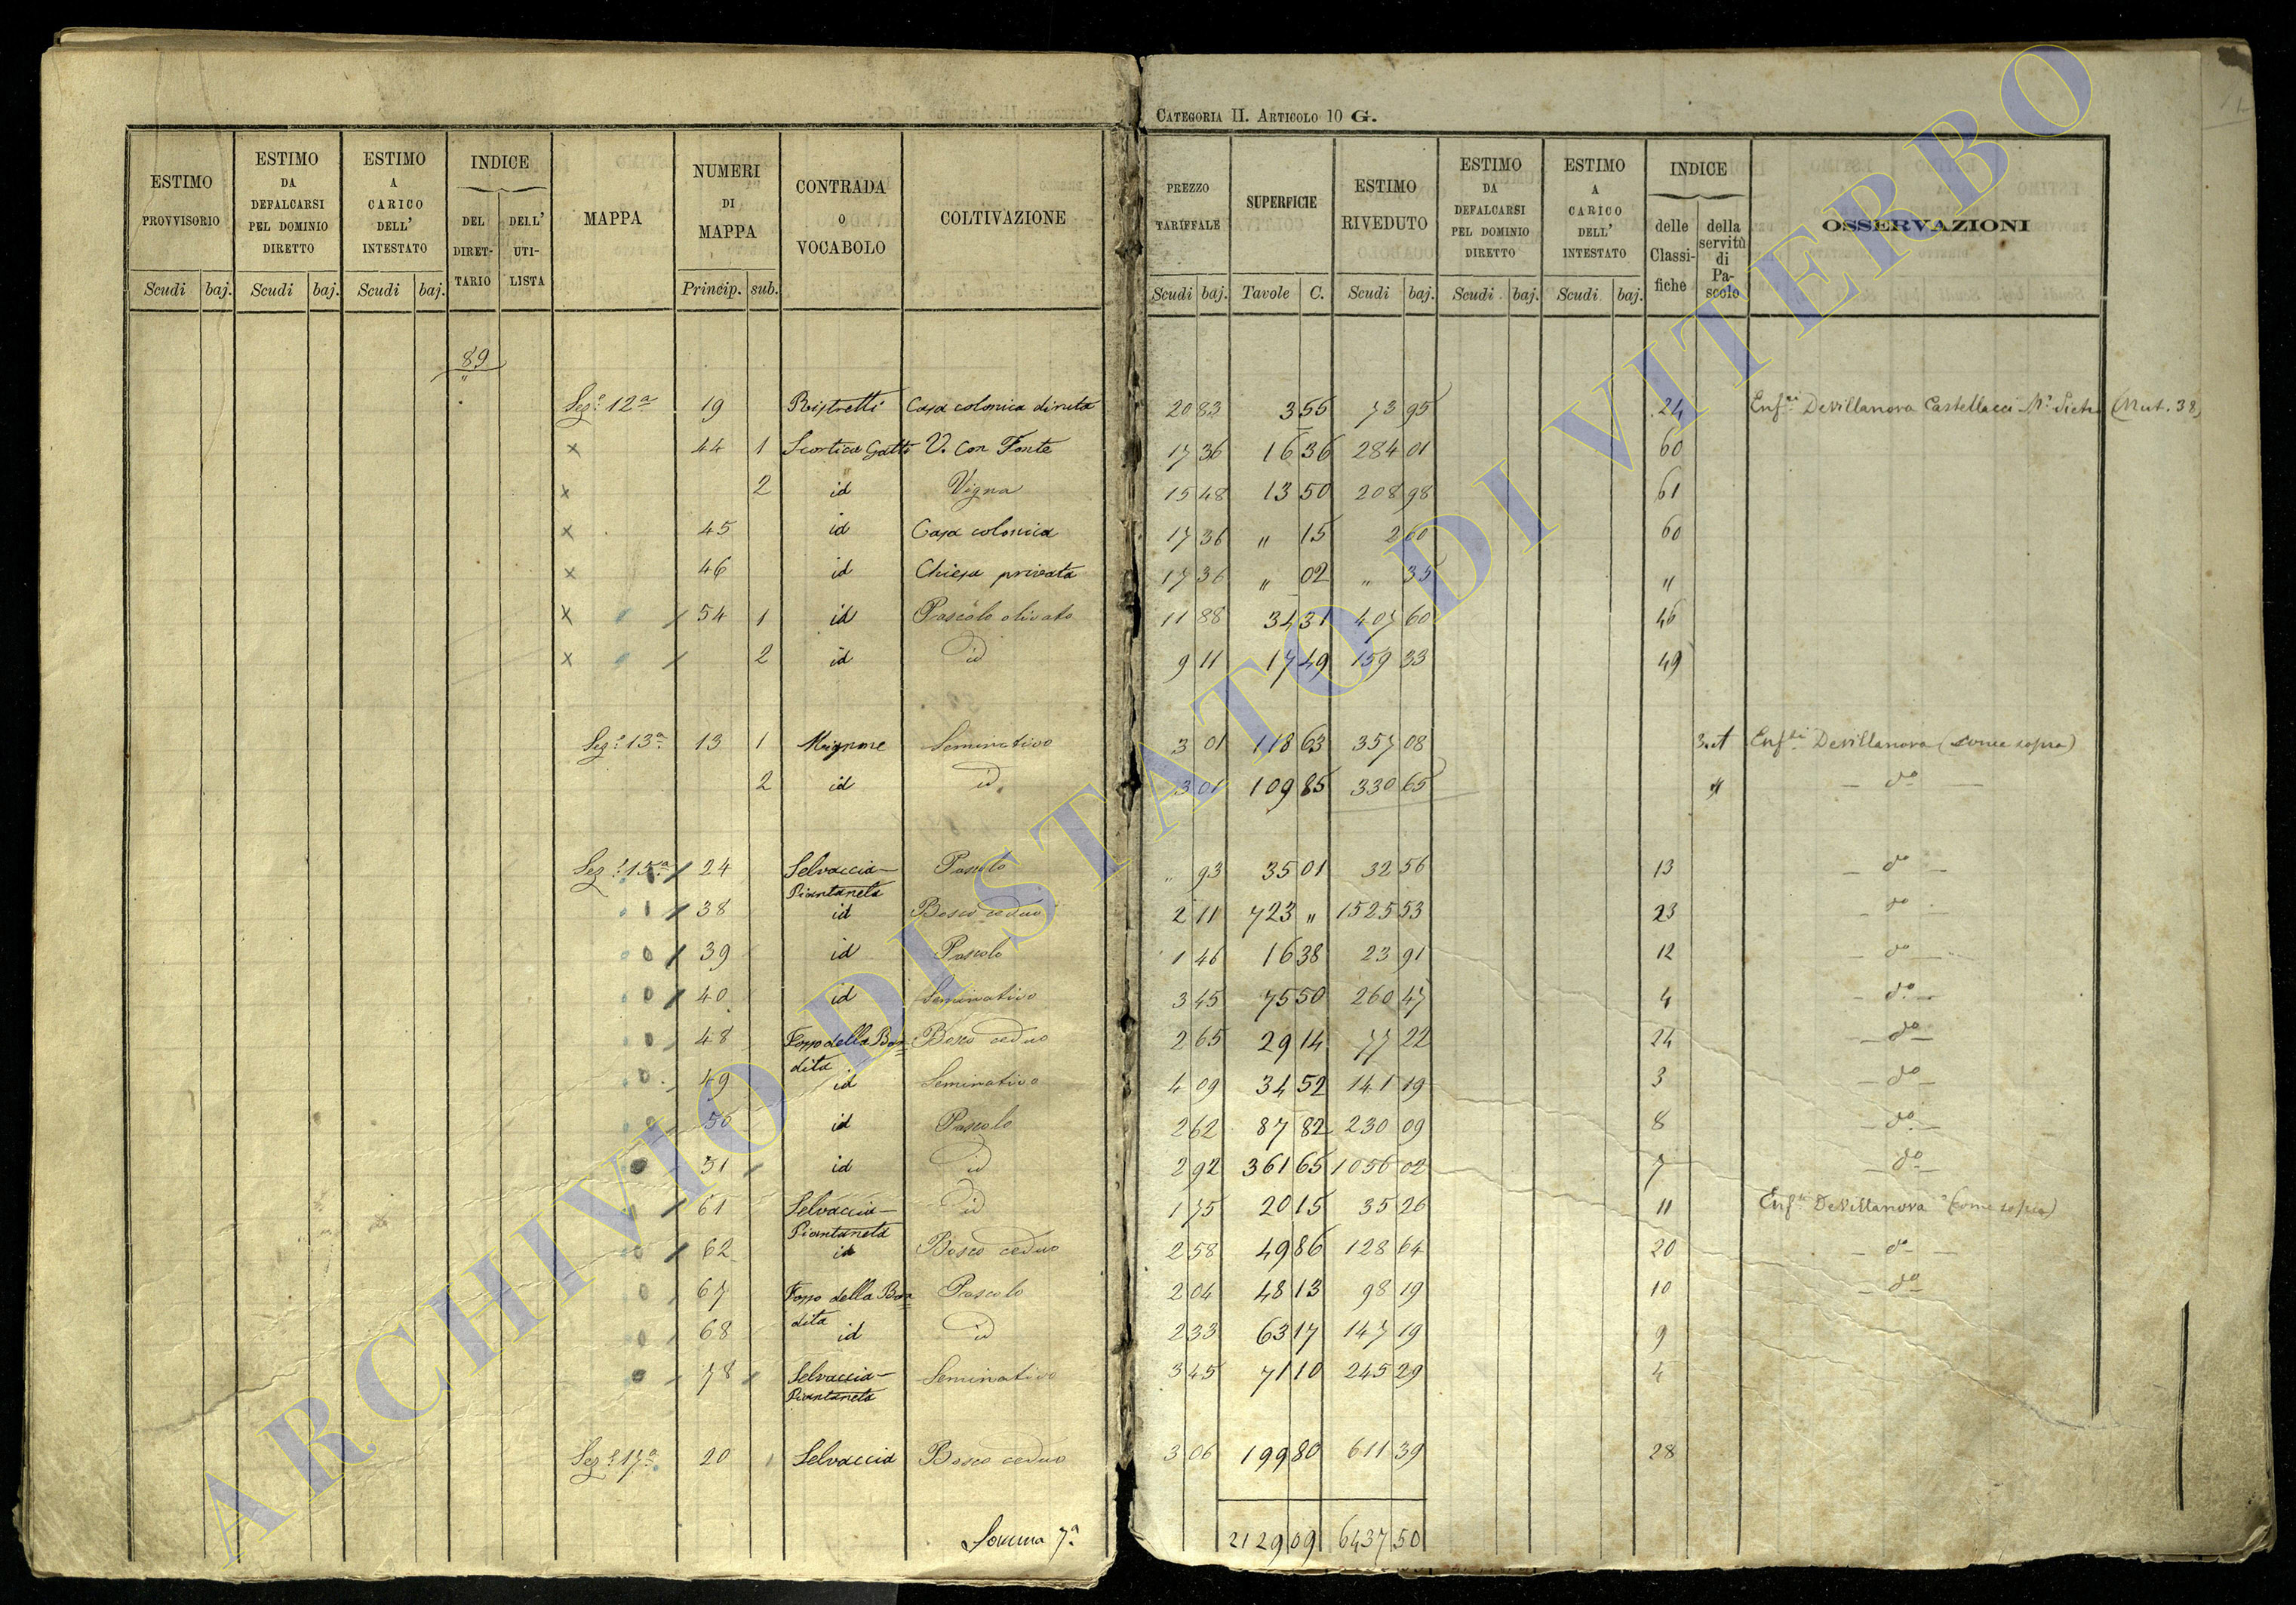 CATEGORIA II. ARTICOLO 10 G.
ESTIMO PROVVISORIO
ESTIMO DA DEFALCARSI PEL DOMINIO DIRETTO
ESTIMO A CARICO DELL' INTESTATO
INDICE
DEL DIRET-TARIO
DELL' UTI-LISTA
MAPPA
NUMERI DI MAPPA
CONTRADA O VOCABOLO
COLTIVAZIONE
PREZZO TARIFFALE
SUPERFICIE
ESTIMO RIVEDUTO
ESTIMO DA DEFALCARSI PEL DOMINIO DIRETTO
ESTIMO A CARICO DELL' INTESTATO
INDICE
delle Classi-fiche
della servitù di Pa-scolo
OSSERVAZIONI
Scudi baj. Scudi baj. Scudi baj. Princip. sub. Scudi baj. Tavole C. Scudi baj. Scudi baj. Scudi baj.
89
"
Sez.e 12a 19 Casa colonica diruta 20 83 3 55 73 95 24 Enf.ti DeVillanova Castellacci Pietro (Mut. 38)
x 44 1 Scortica Gatti V. con Fonte 17 36 16 36 284 01 60
x 2 id Vigna 15 48 13 50 208 98 61
x 45 id Casa colonica 17 36 " 15 2 60 60
x 46 id Chiesa privata 17 36 " 02 " 35 "
x 54 1 id Pascolo olivato 11 88 34 31 407 60 46
x 2 id id 9 11 17 49 159 33 49
Sez.e 13a 13 1 Mignone Seminativo 3 01 118 63 357 08 Enf.ti DeVillanova (come sopra)
2 id id 3 01 109 85 330 65 " - do -
Sez.e 15a 24 Selvaccia- Pascolo " 93 35 01 32 56 13 - do -
Piantaneta
38 id Bosco ceduo 2 11 723 " 1525 53 23 - do -
39 id Pascolo 1 46 16 38 23 91 12 - do -
40 id Seminativo 3 45 75 50 260 47 4 - do -
48 Fosso della Ban- Bosco ceduo 2 65 29 14 77 22 24 - do -
dita
49 id Seminativo 4 09 34 52 141 19 3 - do -
50 id Pascolo 2 62 87 82 230 09 8 - do -
51 id id 2 92 361 65 1056 02 7 - do -
61 Selvaccia- id 1 75 20 15 35 26 11 Enf.ti DeVillanova (come sopra)
Piantaneta
62 id Bosco ceduo 2 58 49 86 128 64 20 - do -
67 Fosso della Ban- Pascolo 2 04 48 13 98 19 10 - do -
dita
68 id id 2 33 63 17 147 19 9
78 Selvaccia- Seminativo 3 45 71 10 245 29 4
Piantaneta
Sez.e 17a 20 1 Selvaccia Bosco ceduo 3 06 199 80 611 39 28
Somma 7a 2129 09 6437 50
ARCHIVIO DI STATO DI VITERBO